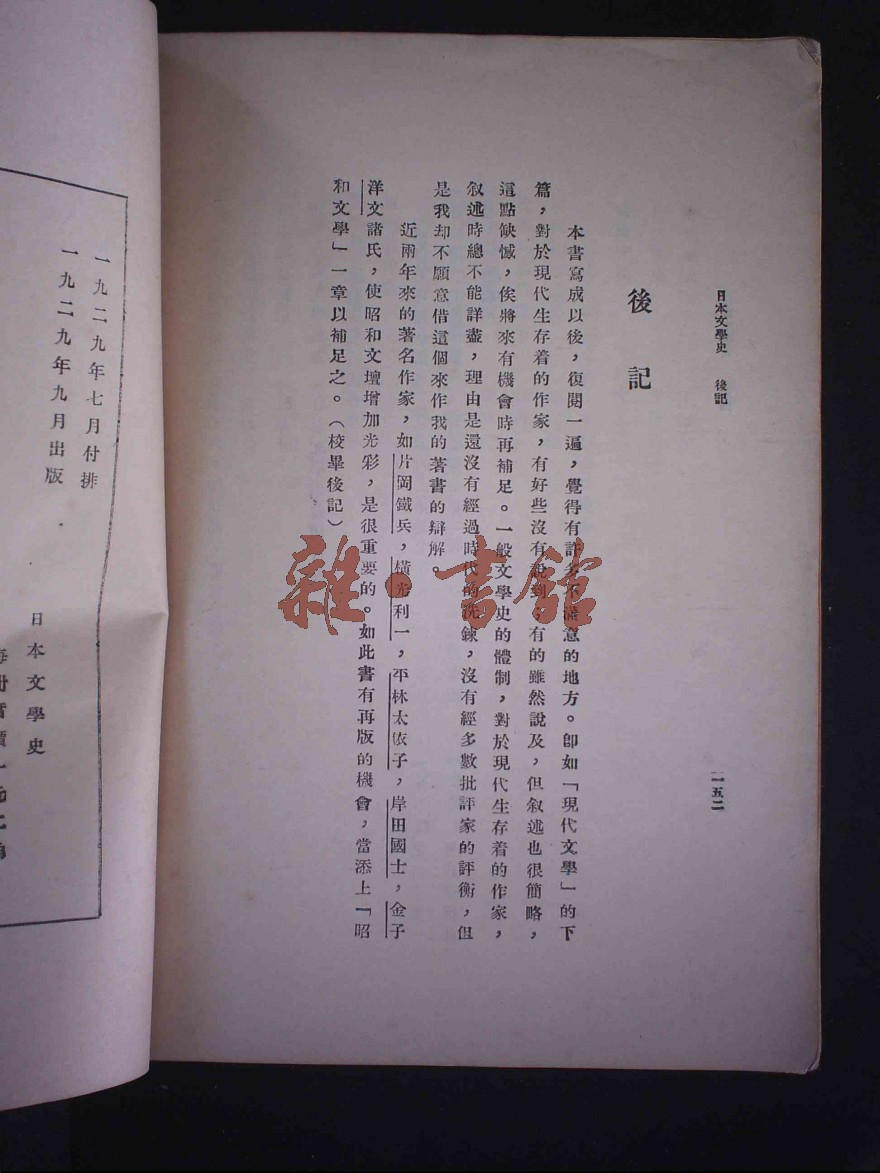 日本文學史　後記
一五二
後記
本書寫成以後，復閱一遍，覺得有許多不滿意的地方。卽如「現代文學」的下
篇，對於現代生存着的作家，有好些沒有說到，有的雖然說及，但叙述也很簡略，
這點缺憾，俟將來有機會時再補足。一般文學史的體制，對於現代生存着的作家，
叙述時總不能詳盡，理由是還沒有經過時代的洗鍊，沒有經多數批評家的評衡，但
是我却不願意借這個來作我的著書的辯解。
近兩年來的著名作家，如片岡鐵兵，橫光利一，平林太依子，岸田國士，金子
洋文諸氏，使昭和文壇增加光彩，是很重要的。如此書有再版的機會，當添上「昭
和文學」一章以補足之。（校畢後記）
雜·書館
一九二九年七月付排
一九二九年九月出版
日本文學史
每册實價一元